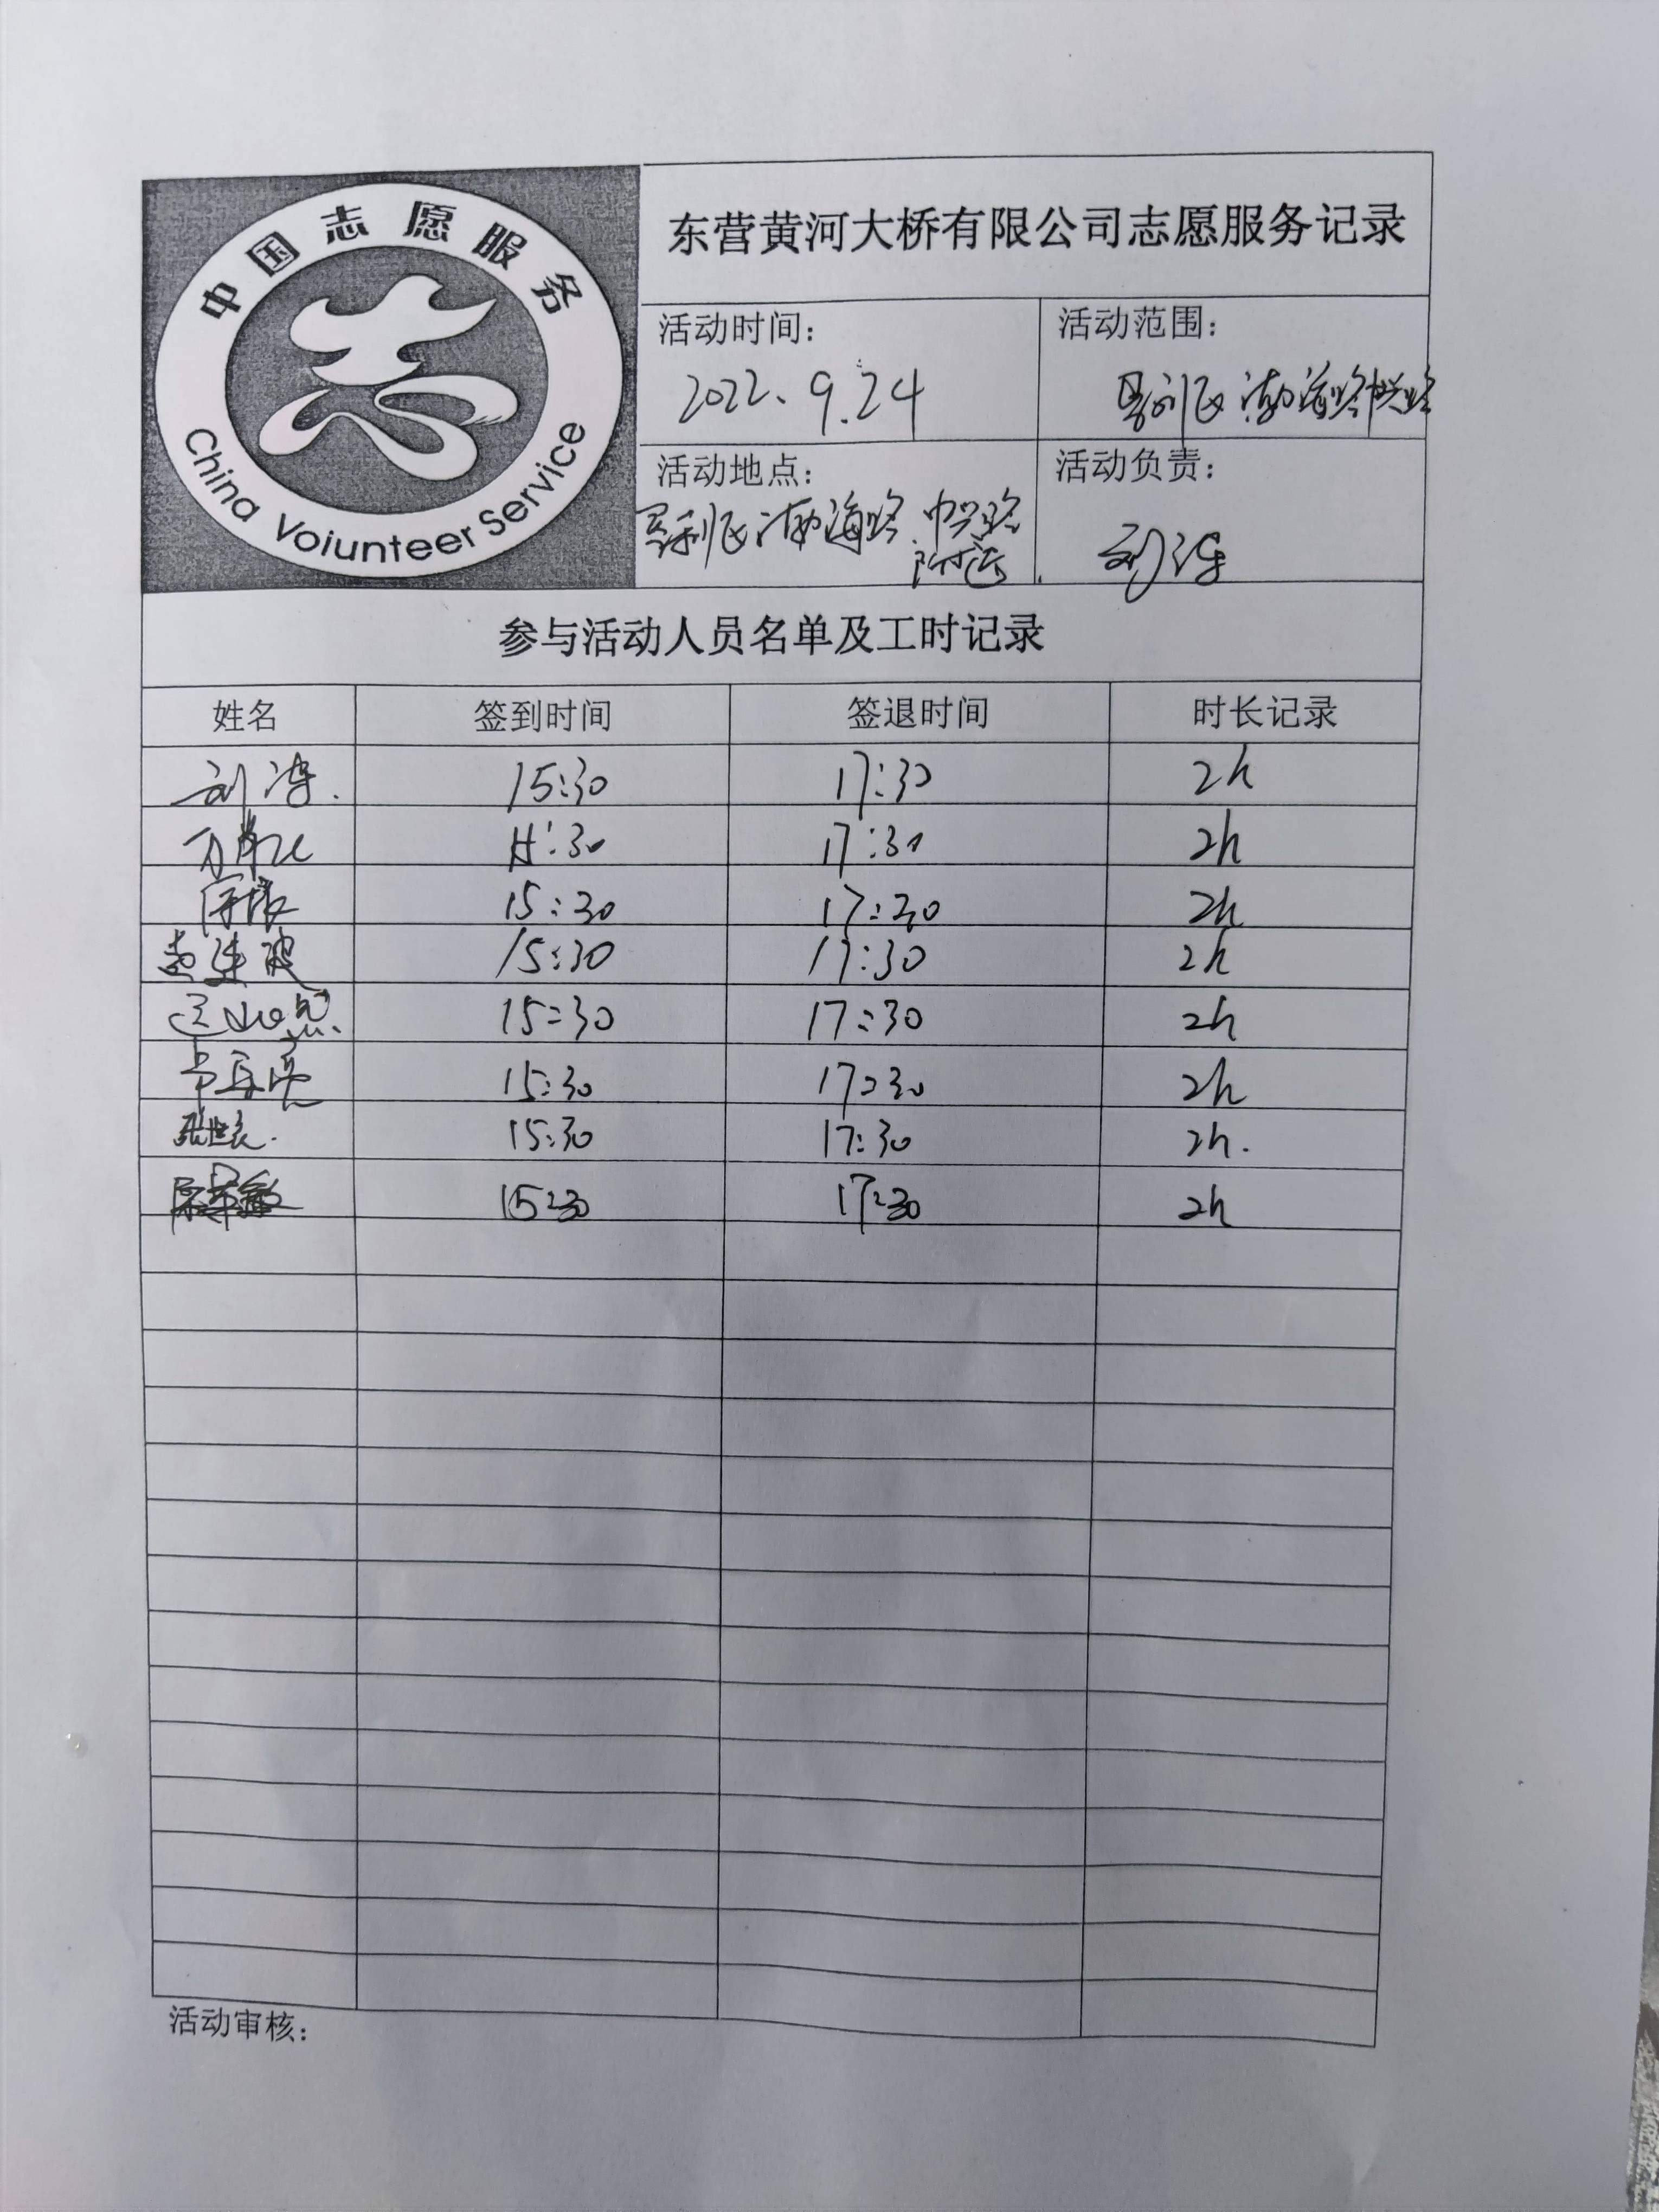 中国志愿服务
China Voiunteer Service
东营黄河大桥有限公司志愿服务记录
活动时间：
2022、9.24
活动范围：
垦利区渤海路中兴路
活动地点：
垦利区渤海路、中兴路
附近.
活动负责：
刘涛
参与活动人员名单及工时记录
姓名 签到时间 签退时间 时长记录
刘涛. 15:30 17:30 2h
15:30 17:30 2h
15:30 17:30 2h
15:30 17:30 2h
15:30 17:30 2h
15:30 17:30 2h
15:30 17:30 2h.
15:30 17:30 2h
活动审核：